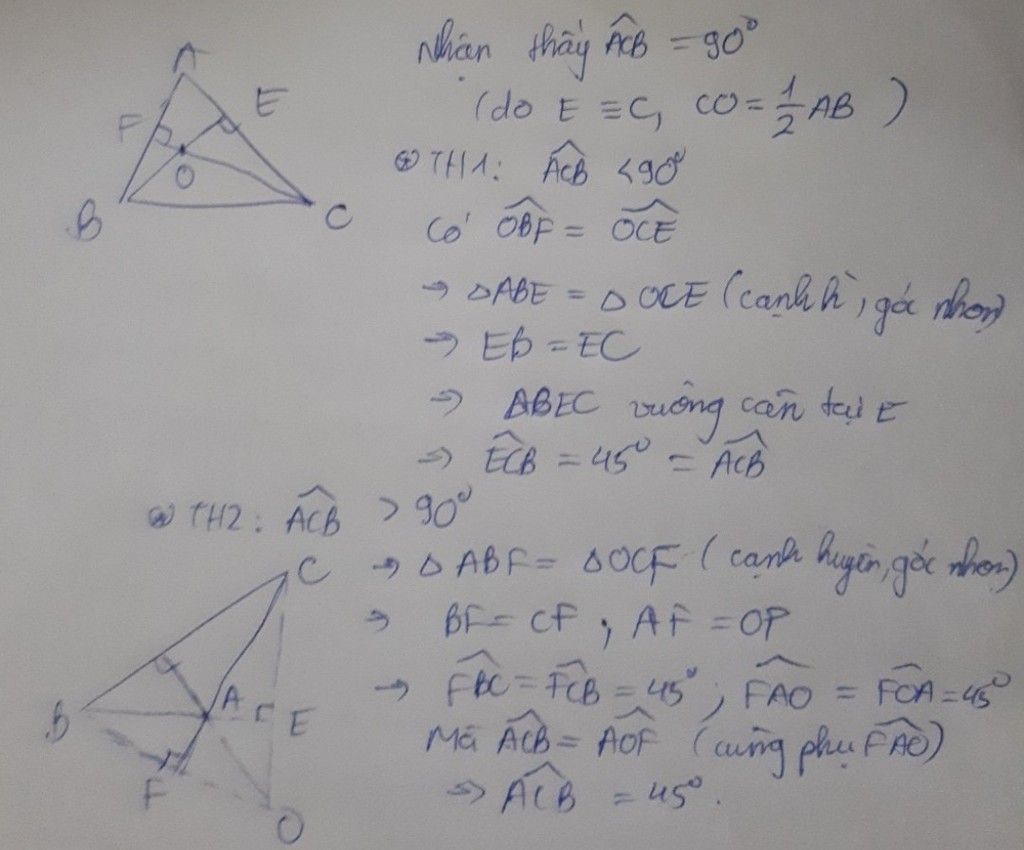 Nhận thấy ACB = 90°
(do E ≡ C, CO = 1/2 AB )
⊛ TH1: ACB < 90°
Có OBF = OCE
→ △ABE = △OCE (cạnh h`, góc nhọn)
→ EB = EC
→ △BEC vuông cân tại E
→ ECB = 45° = ACB
⊛ TH2: ACB > 90°
→ △ABF = △OCF (cạnh huyền, góc nhọn)
→ BF = CF ; AF = OF
→ FBC = FCB = 45° ; FAO = FOA = 45°
Mà ACB = AOF (cùng phụ FAO)
→ ACB = 45°.
A
F
E
O
B
C
C
B
A
E
F
O